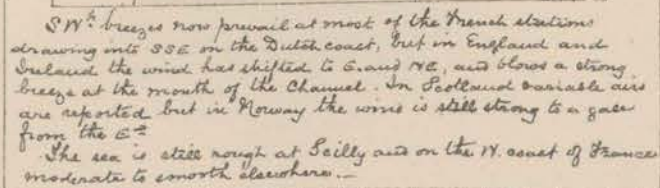 SWʰ breezes now prevail at most of the French stations
drawing into SSE on the Dutch coast, but in England and
Ireland the wind has shifted to E. and NE, and blows a strong
breeze at the mouth of the Channel. In Scotland variable airs
are reported but in Norway the wind is still strong to a gale
from the Eᵈ
The sea is still rough at Scilly and on the W. coast of France
moderate to smooth elsewhere.—